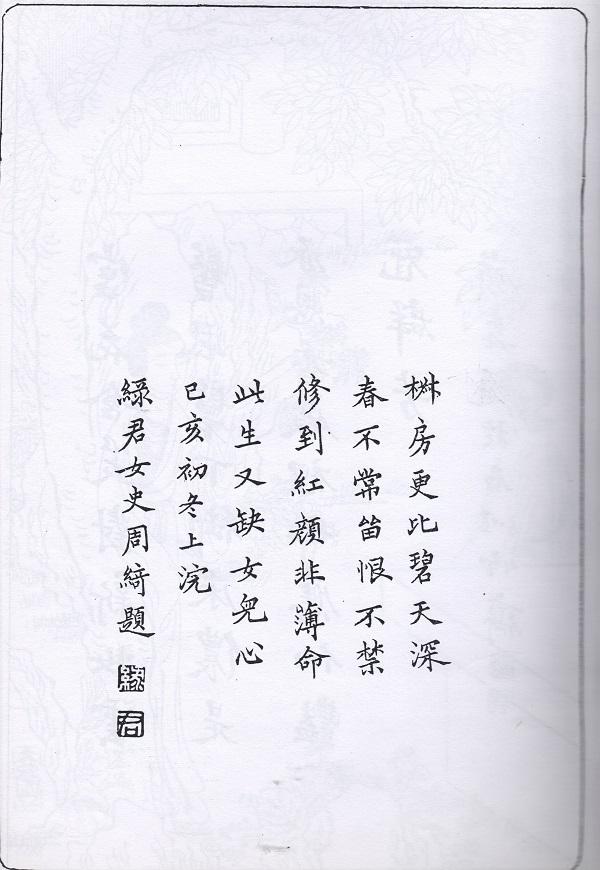 椒房更比碧天深
春不常留恨不禁
修到紅顏非薄命
此生又缺女兒心
己亥初冬上浣
綠君女史周綺題
綠
君